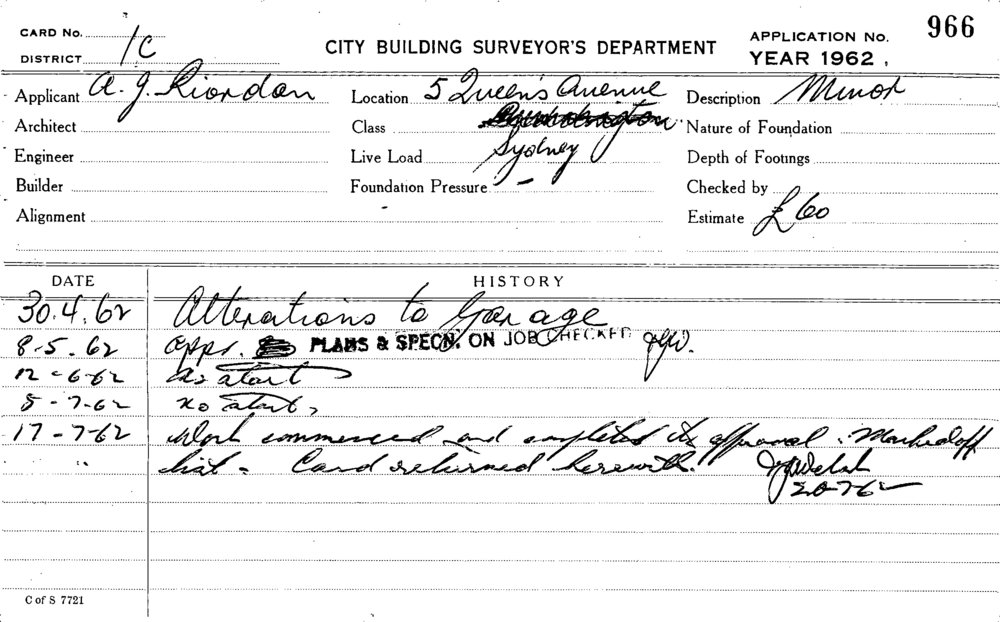 CARD No.
1C
DISTRICT
CITY BUILDING SURVEYOR'S DEPARTMENT
APPLICATION No. 966
YEAR 1962,
Applicant A. J. Riordan
Location 5 Queen's Avenue
Description Minor
Architect
Class
Nature of Foundation
Engineer
Live Load Sydney
Depth of Footings
Builder
Foundation Pressure -
Checked by
Alignment
Estimate £60
DATE HISTORY
30.4.62 Alterations to Garage
8.5.62 appr. PLANS & SPECN. ON JOB CHECKED
12-6-62 no start
5-7-62 no start.
17-7-62 Work commenced and completed to approval. Marked off
list. Card returned herewith.
20-7-62
C of S 7721